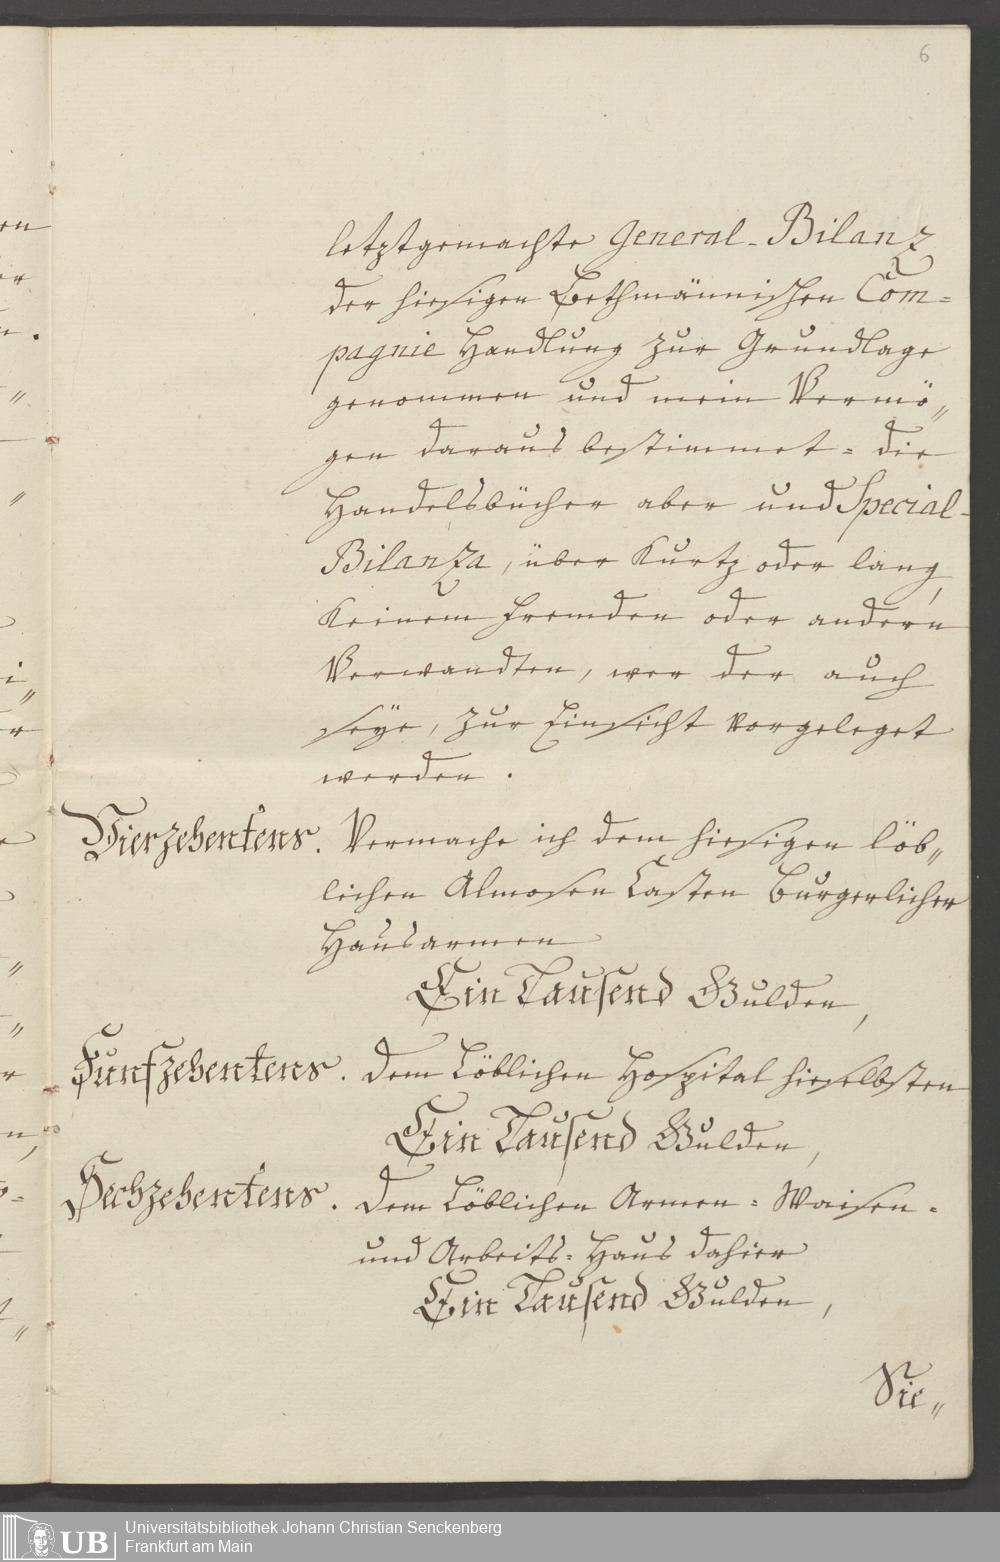 6
letztgemachte General-Bilanz
der hiesigen Bethmännischen Com=
pagnie Handlung zur Grundlage
genommen und mein Vermö„
gen daraus bestimmet = die
Handelsbücher aber und Special-
Bilanza, über kurtz oder lang,
keinem Fremden oder andern
Verwandten, wer der auch
seÿe, zur Einsicht vorgeleget
werden.
Vierzehentens. Vermache ich dem hiesigen löb„
lichen Almosen Casten Burgerlicher
Hausarmen
Ein Tausend Gulden,
Funfzehentens. dem Löblichen Hospital hieselbsten
Ein Tausend Gulden,
Sechzehentens. dem Löblichen Armen= Waisen=
und Arbeits=Haus dahier
Ein Tausend Gulden,
Sie„
UB
Universitätsbibliothek Johann Christian Senckenberg
Frankfurt am Main